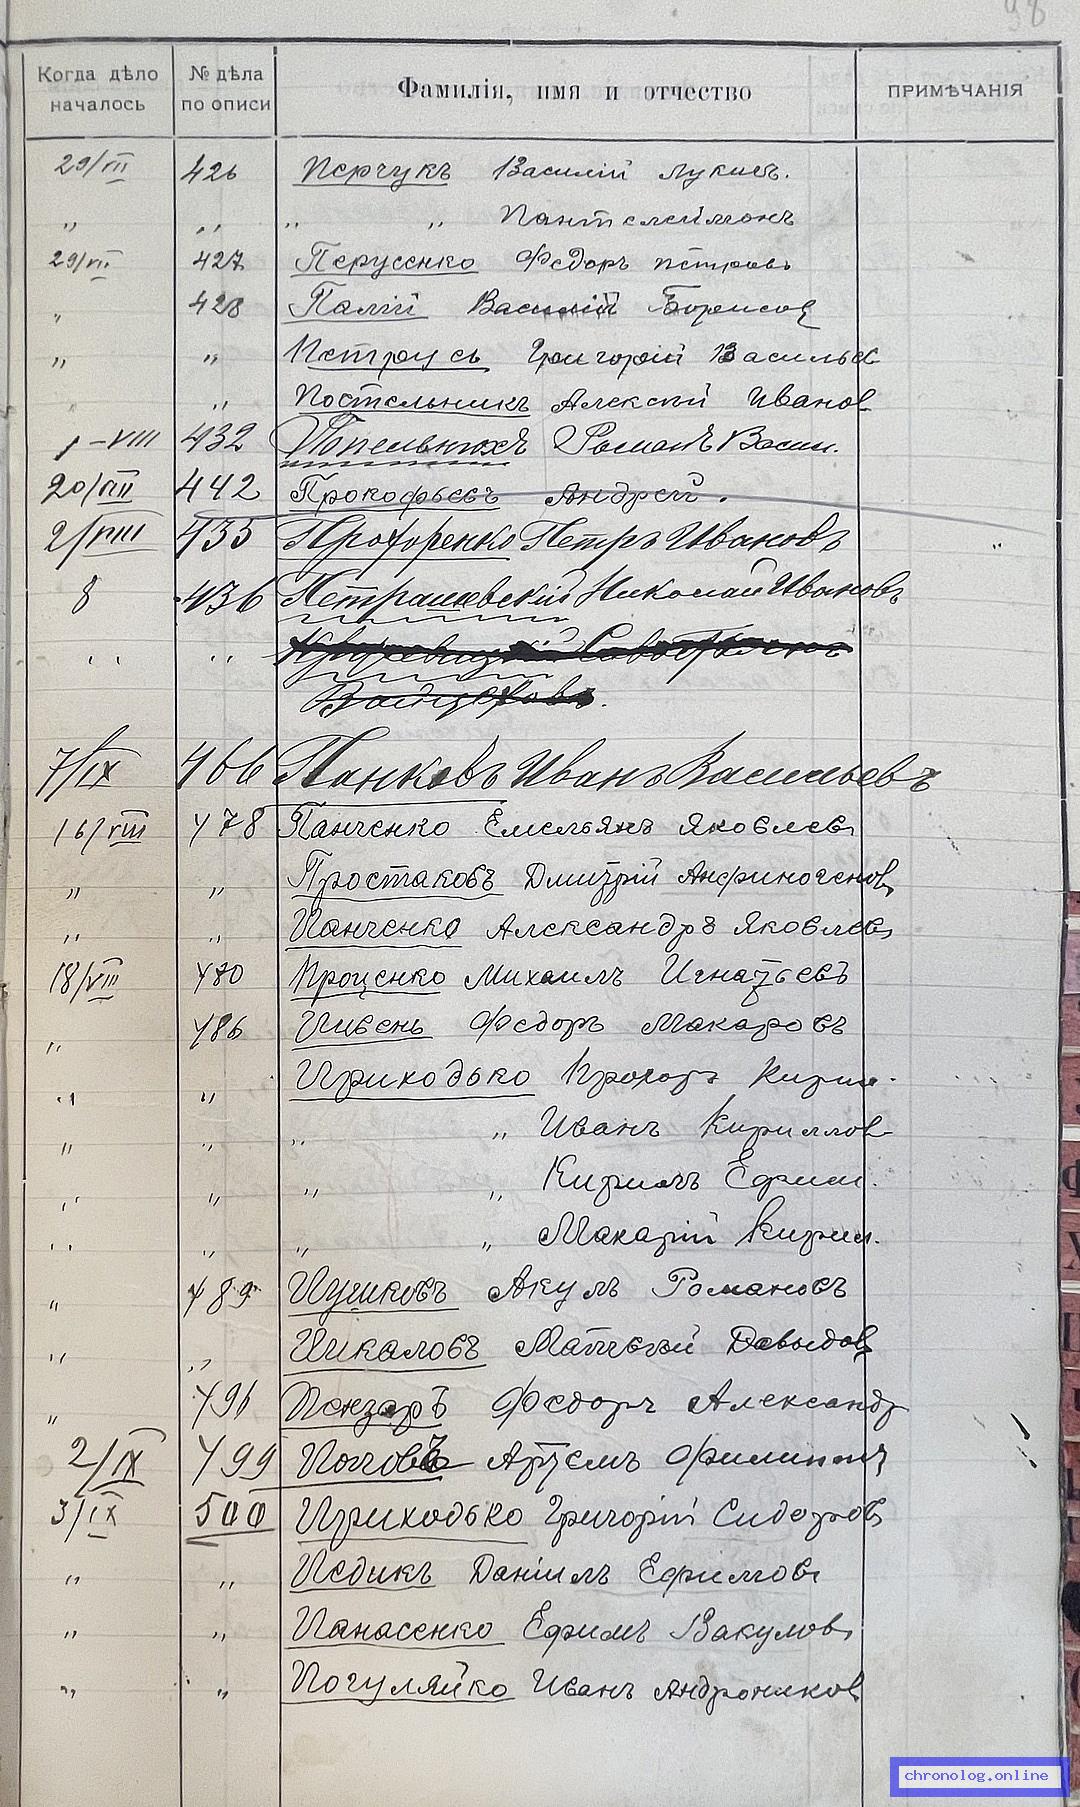 98
Когда дѣло началось № дѣла по описи Фамилія, имя и отчество ПРИМѢЧАНІЯ
29/VII 426 Перчукъ Василій Лукичъ.
„ „ „ „ Пантелеймонъ
29/VII 427 Перусенко Федоръ Петровъ
„ 428 Палій Василій Борисов
„ „ Петрусь Григорій Васильев
„ „ Постельникъ Алексѣй Иванов
1-VIII 432 Романъ Васил.
20/VII 442 Прокофьевъ Андрей.
2/VIII 435 Прохоренко Петръ Ивановъ „
8 436 Петрашевскій Николай Ивановъ
„ „
7/IX 466 Панковъ Иванъ Васильевъ
16/VIII 478 Панченко Емельянъ Яковлевъ
„ „ Простаковъ Дмитрій Анфиногенов
„ „ Панченко Александръ Яковлев
18/VIII 480 Проценко Михаилъ Игнатьевъ
„ 486 Пивень Федоръ Макаровъ
„ „ Приходько Прохоръ Кирил.
„ „ „ „ Иванъ Кириллов
„ „ „ „ Кирилъ Ефим.
„ „ „ „ Макарій Кирил.
„ 489 Пушковъ Акулъ Романовъ
„ „ Пикаловъ Матвѣй Давыдов
„ 496 Пензаръ Федоръ Александр
2/IX 499 Поповъ Артемъ Филипп
3/IX 500 Приходько Григорій Сидоров
„ „ Педикъ Даніилъ Ефимовъ
„ „ Панасенко Ефимъ Вакулов
„ „ Погуляйко Иванъ Андроников
chronolog.online